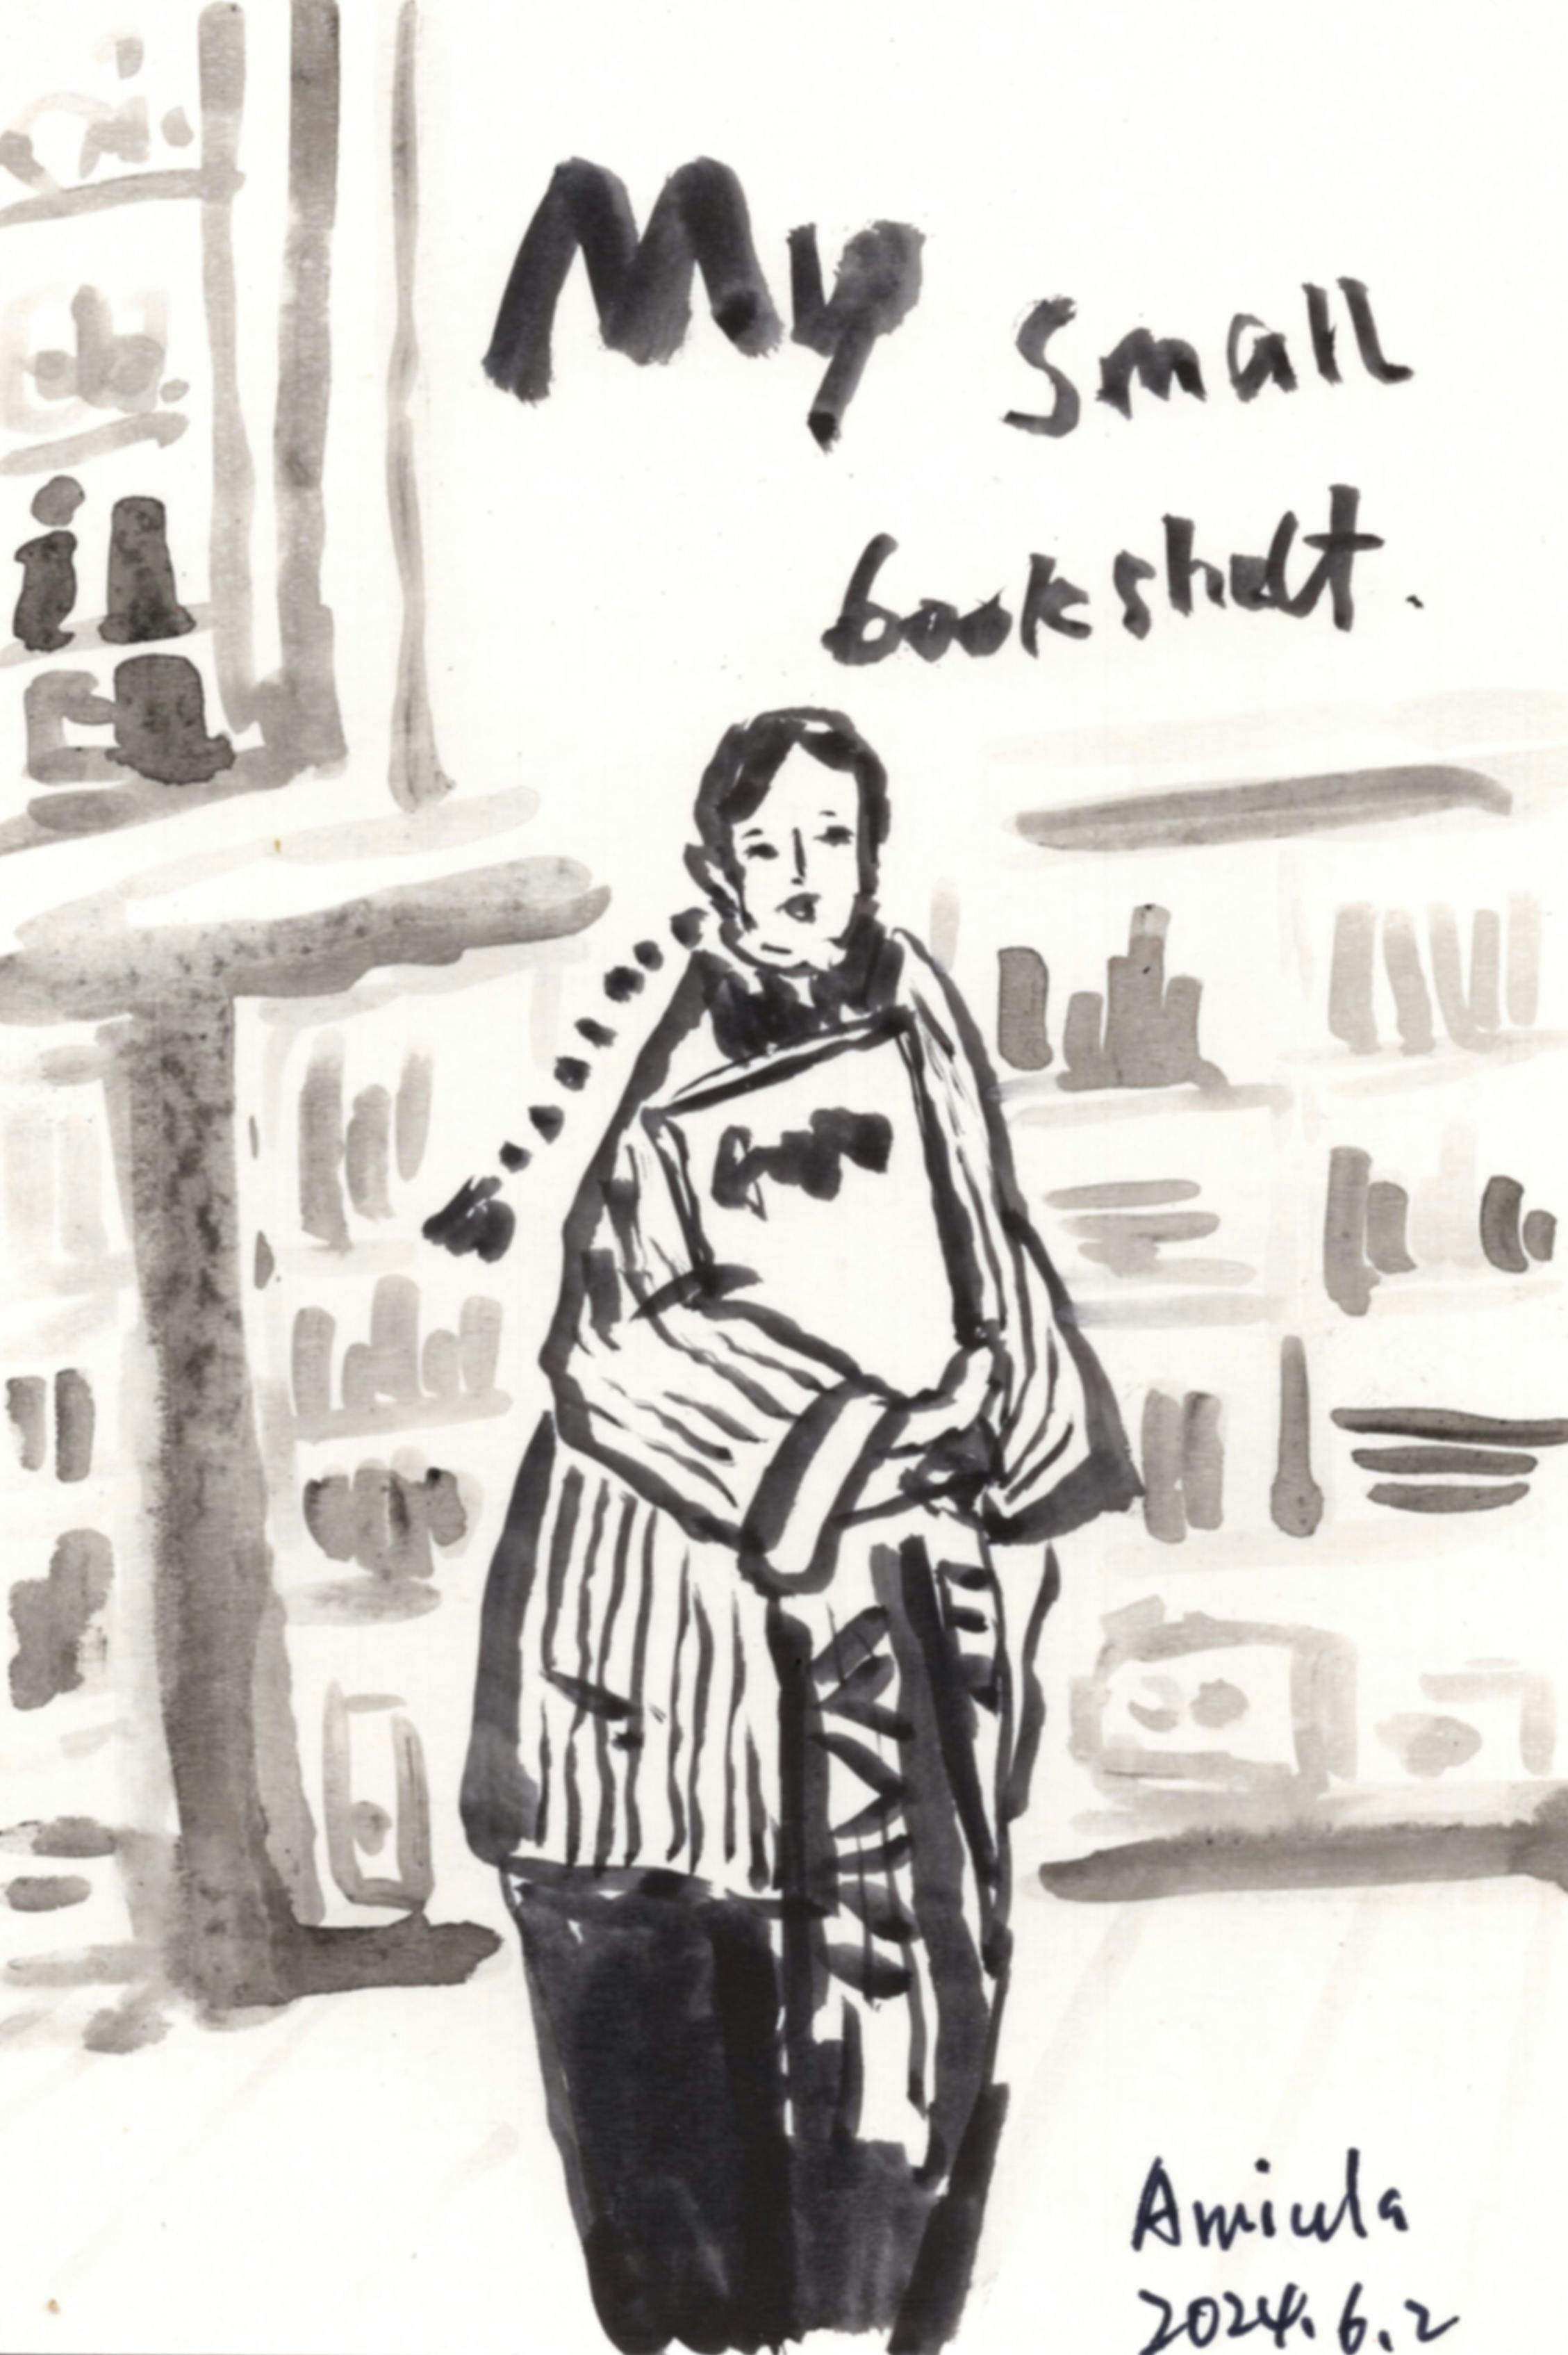 My small
bookshelf.
Amicula
2024.6.2